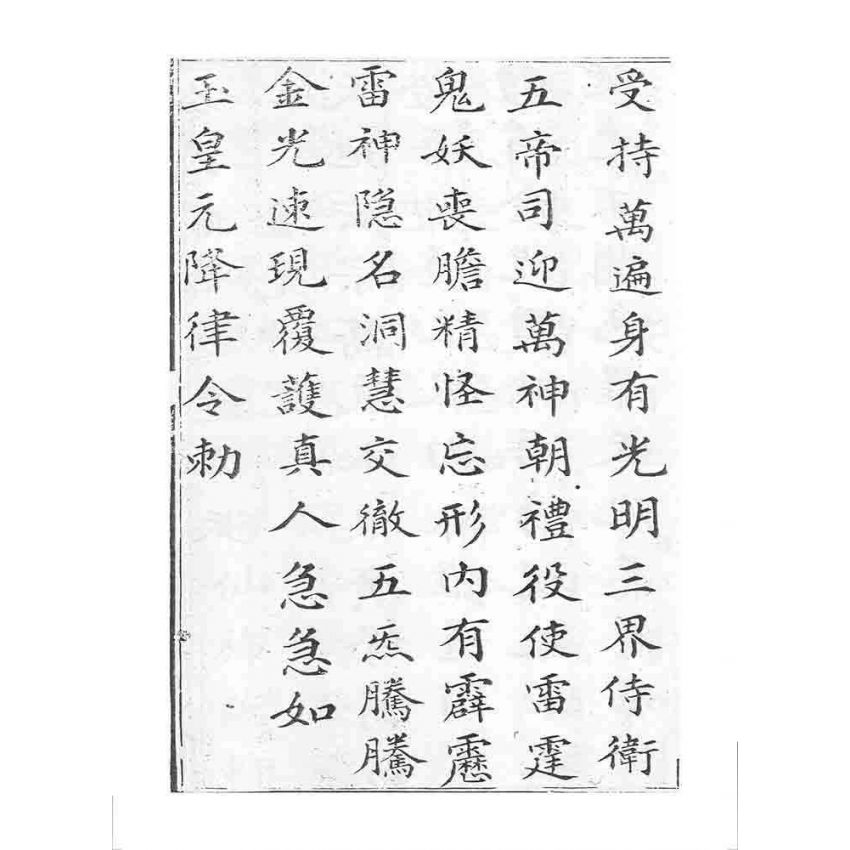 受持萬遍身有光明三界侍衛
五帝司迎萬神朝禮役使雷霆
鬼妖喪膽精怪忘形內有霹靂
雷神隱名洞慧交徹五炁騰騰
金光速現覆護真人急急如
玉皇元降律令勅